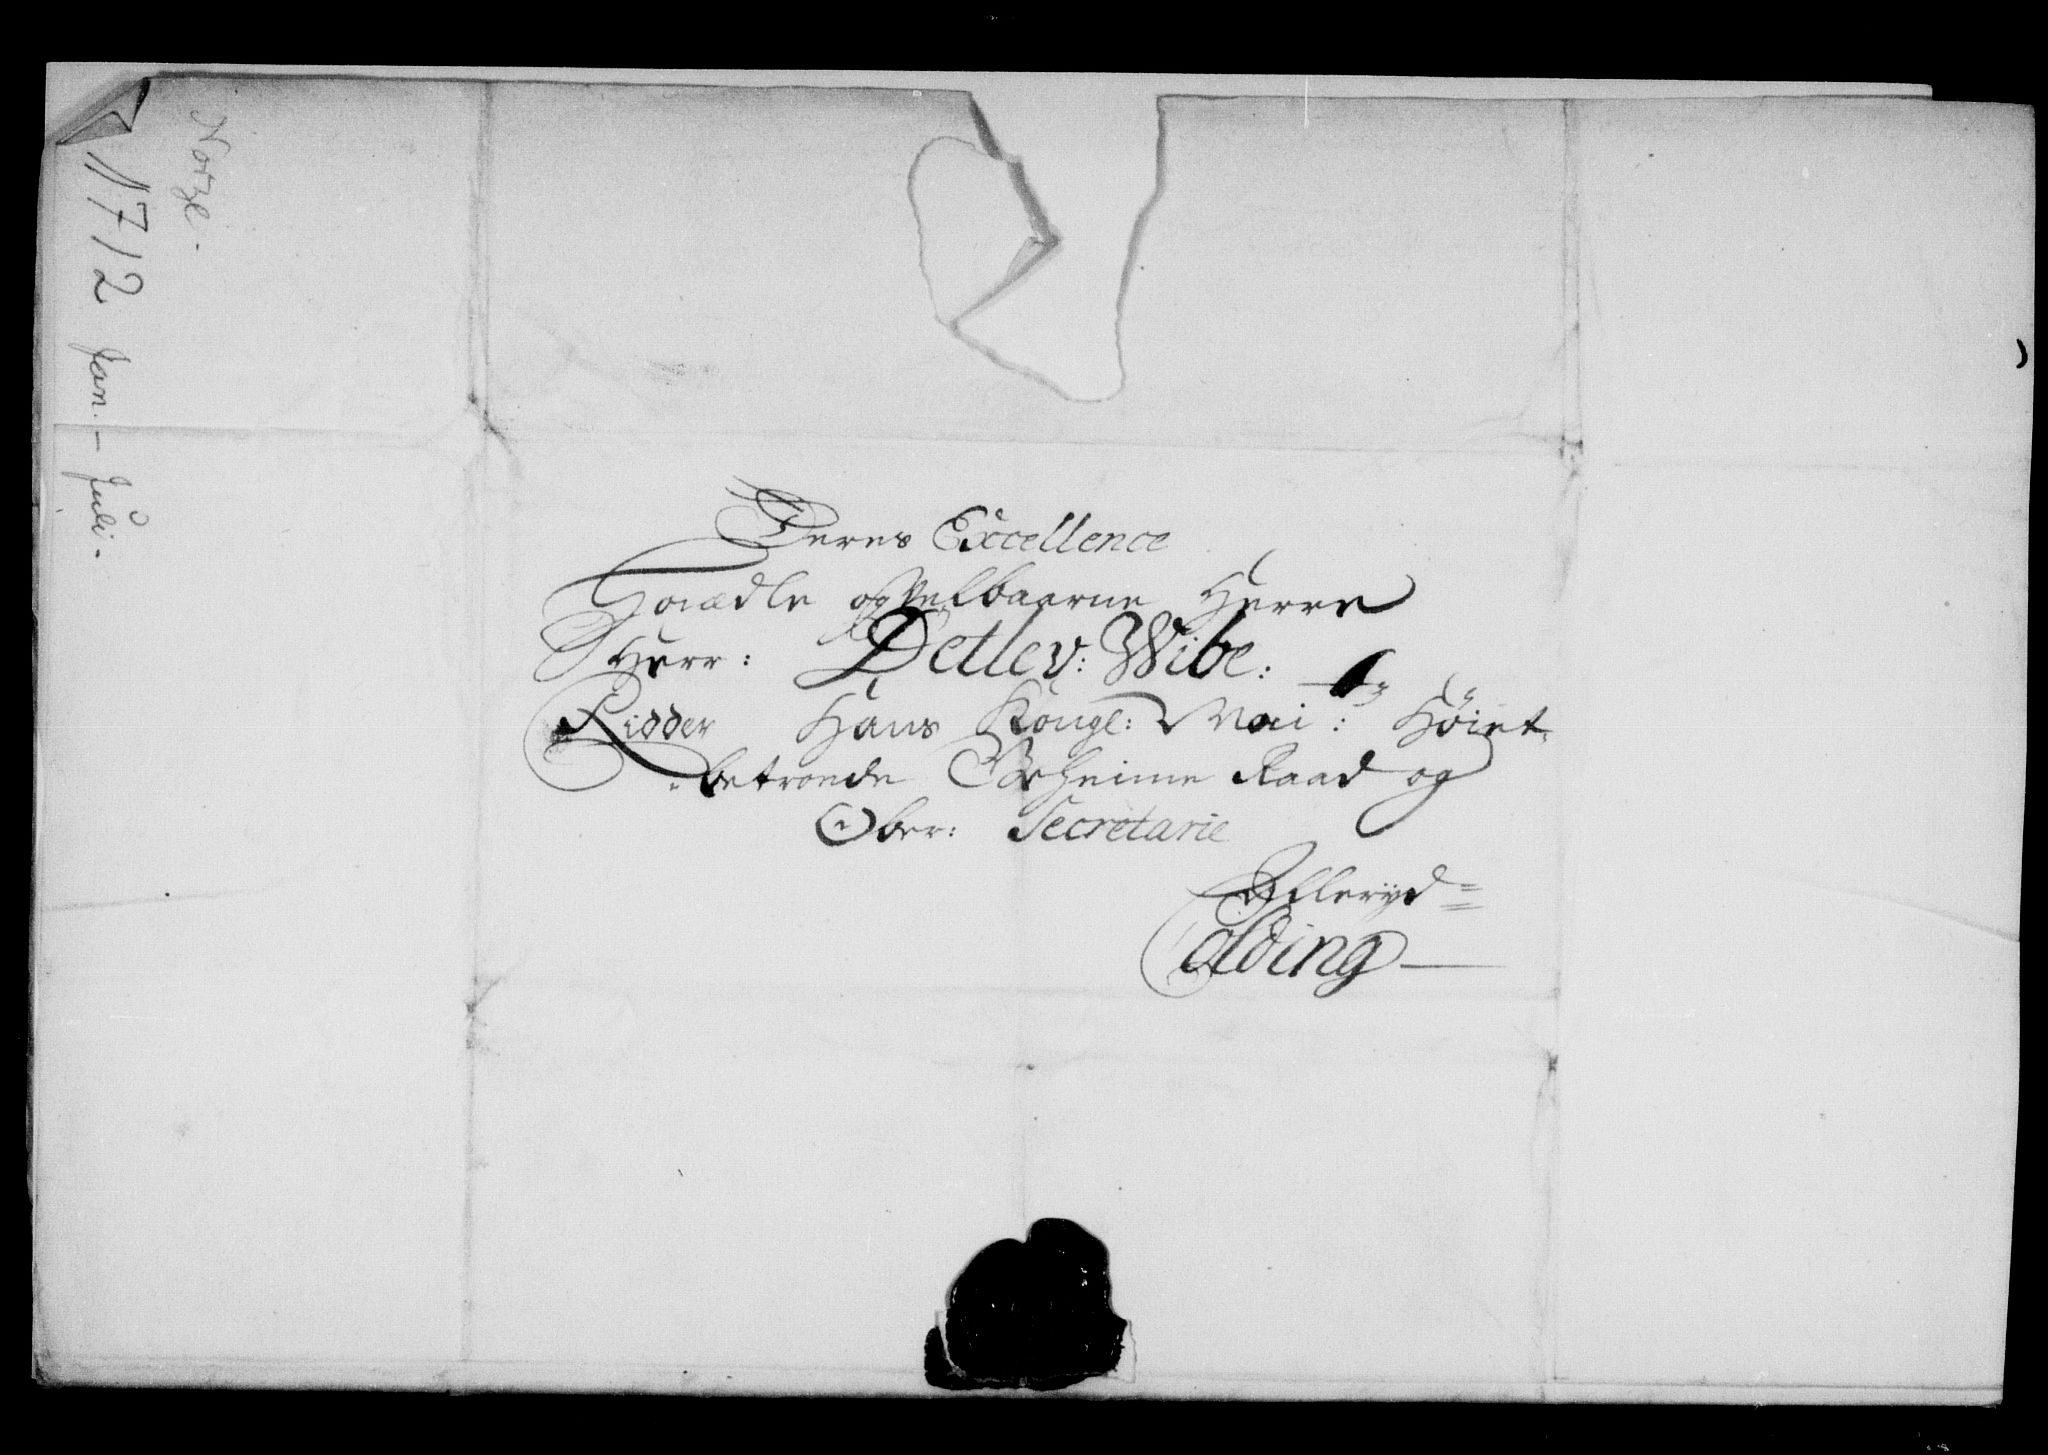 Norge.
1712 Jan. – Juli.
Deres Excellence
Høiædle og Velbaarne Herre
Herr: Detlev: Wibe:
Ridder Hans Kongl: Mai: Høist
betroede Geheime Raad og
Ober: Secretarie
Allerijd=
Colding